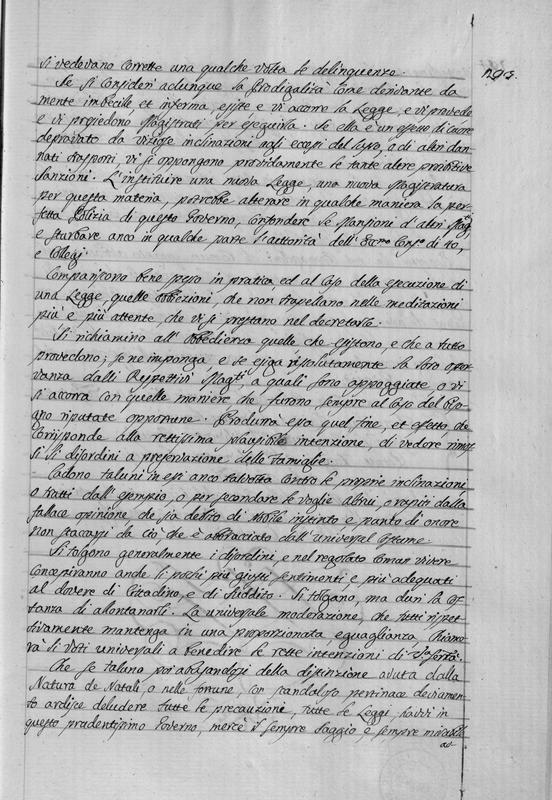 si vedevano corrette una qualche volta le delinquenze. 293.
Se si consideri adunque la Prodigalità come derivante da
mente imbecile, et inferma, esiste e vi accorre la Legge, e vi provede
e vi presiedono Magistrati per eseguirla. Se ella è un effetto di Cuore
depravato da viziose inclinazioni negli eccessi del lusso, o di altri dan-
nati trasporti, vi si oppongono providamente le tante altre proibitive
Sanzioni. L'instituire una nuova Legge, una nuova Magistratura
per questa materia, potrebbe alterare in qualche maniera la per-
fetta Polizia di questo Governo, confondere le Mansioni d'altri Mag.ti
e sturbare anco in qualche parte l'autorità dell' Ecc.mo Cons.o di 40,
e Collegi.
Compariscono bene spesso in pratica, ed al Caso della esecuzione di
una Legge, quelle obbiezioni, che non trapellano nelle meditazioni
più e più attente, che vi si prestano nel decretarle.
Si richiamino all' obbedienza quelle che esistono, e che a tutto
provedono; se ne imponga, e se esiga rissolutamente la loro osser-
vanza dalli Respettivi Mag.ti, a quali sono appoggiate o vi
si accorra con quelle maniere che furono sempre al Caso del biso-
gno riputate opportune. Produrrà essa quel fine, et effetto, che
corrisponde alla rettissima plausibile intenzione, di vedere rimos-
si li disordini a preservazione delle Famiglie.
Cadono taluni in essi anco talvolta contro le proprie inclinazioni,
o tratti dall' esempio, o per secondare le voglie altrui, o rapiti dalla
fallace opinione, che sia debito di nobile instinto e punto di onore
non staccarsi da ciò che è abbracciato dall' universal costume.
Si tolgano generalmente i disordini, e nel regolato comun vivere
concepiranno anche li pochi più giusti sentimenti e più adeguati
al dovere di Cittadino, e di Suddito. Si tolgano, ma duri la cos-
tanza di allontanarli. La universale moderazione, che tutti rispet-
tivamente mantenga in una proporzionata eguaglianza, chiame-
rà li Voti universali a benedire le rette intenzioni di V.ra Sert.à
Che se taluno poi abusandosi della distinzione avuta dalla
Natura de Natali, o nelle fortune, con scandaloso pertinace deviamen-
to ardisce deludere tutte le precauzioni, tutte le Leggi, havvi in
questo prudentissimo Governo, mercè il sempre saggio, e sempre mirabil
ad